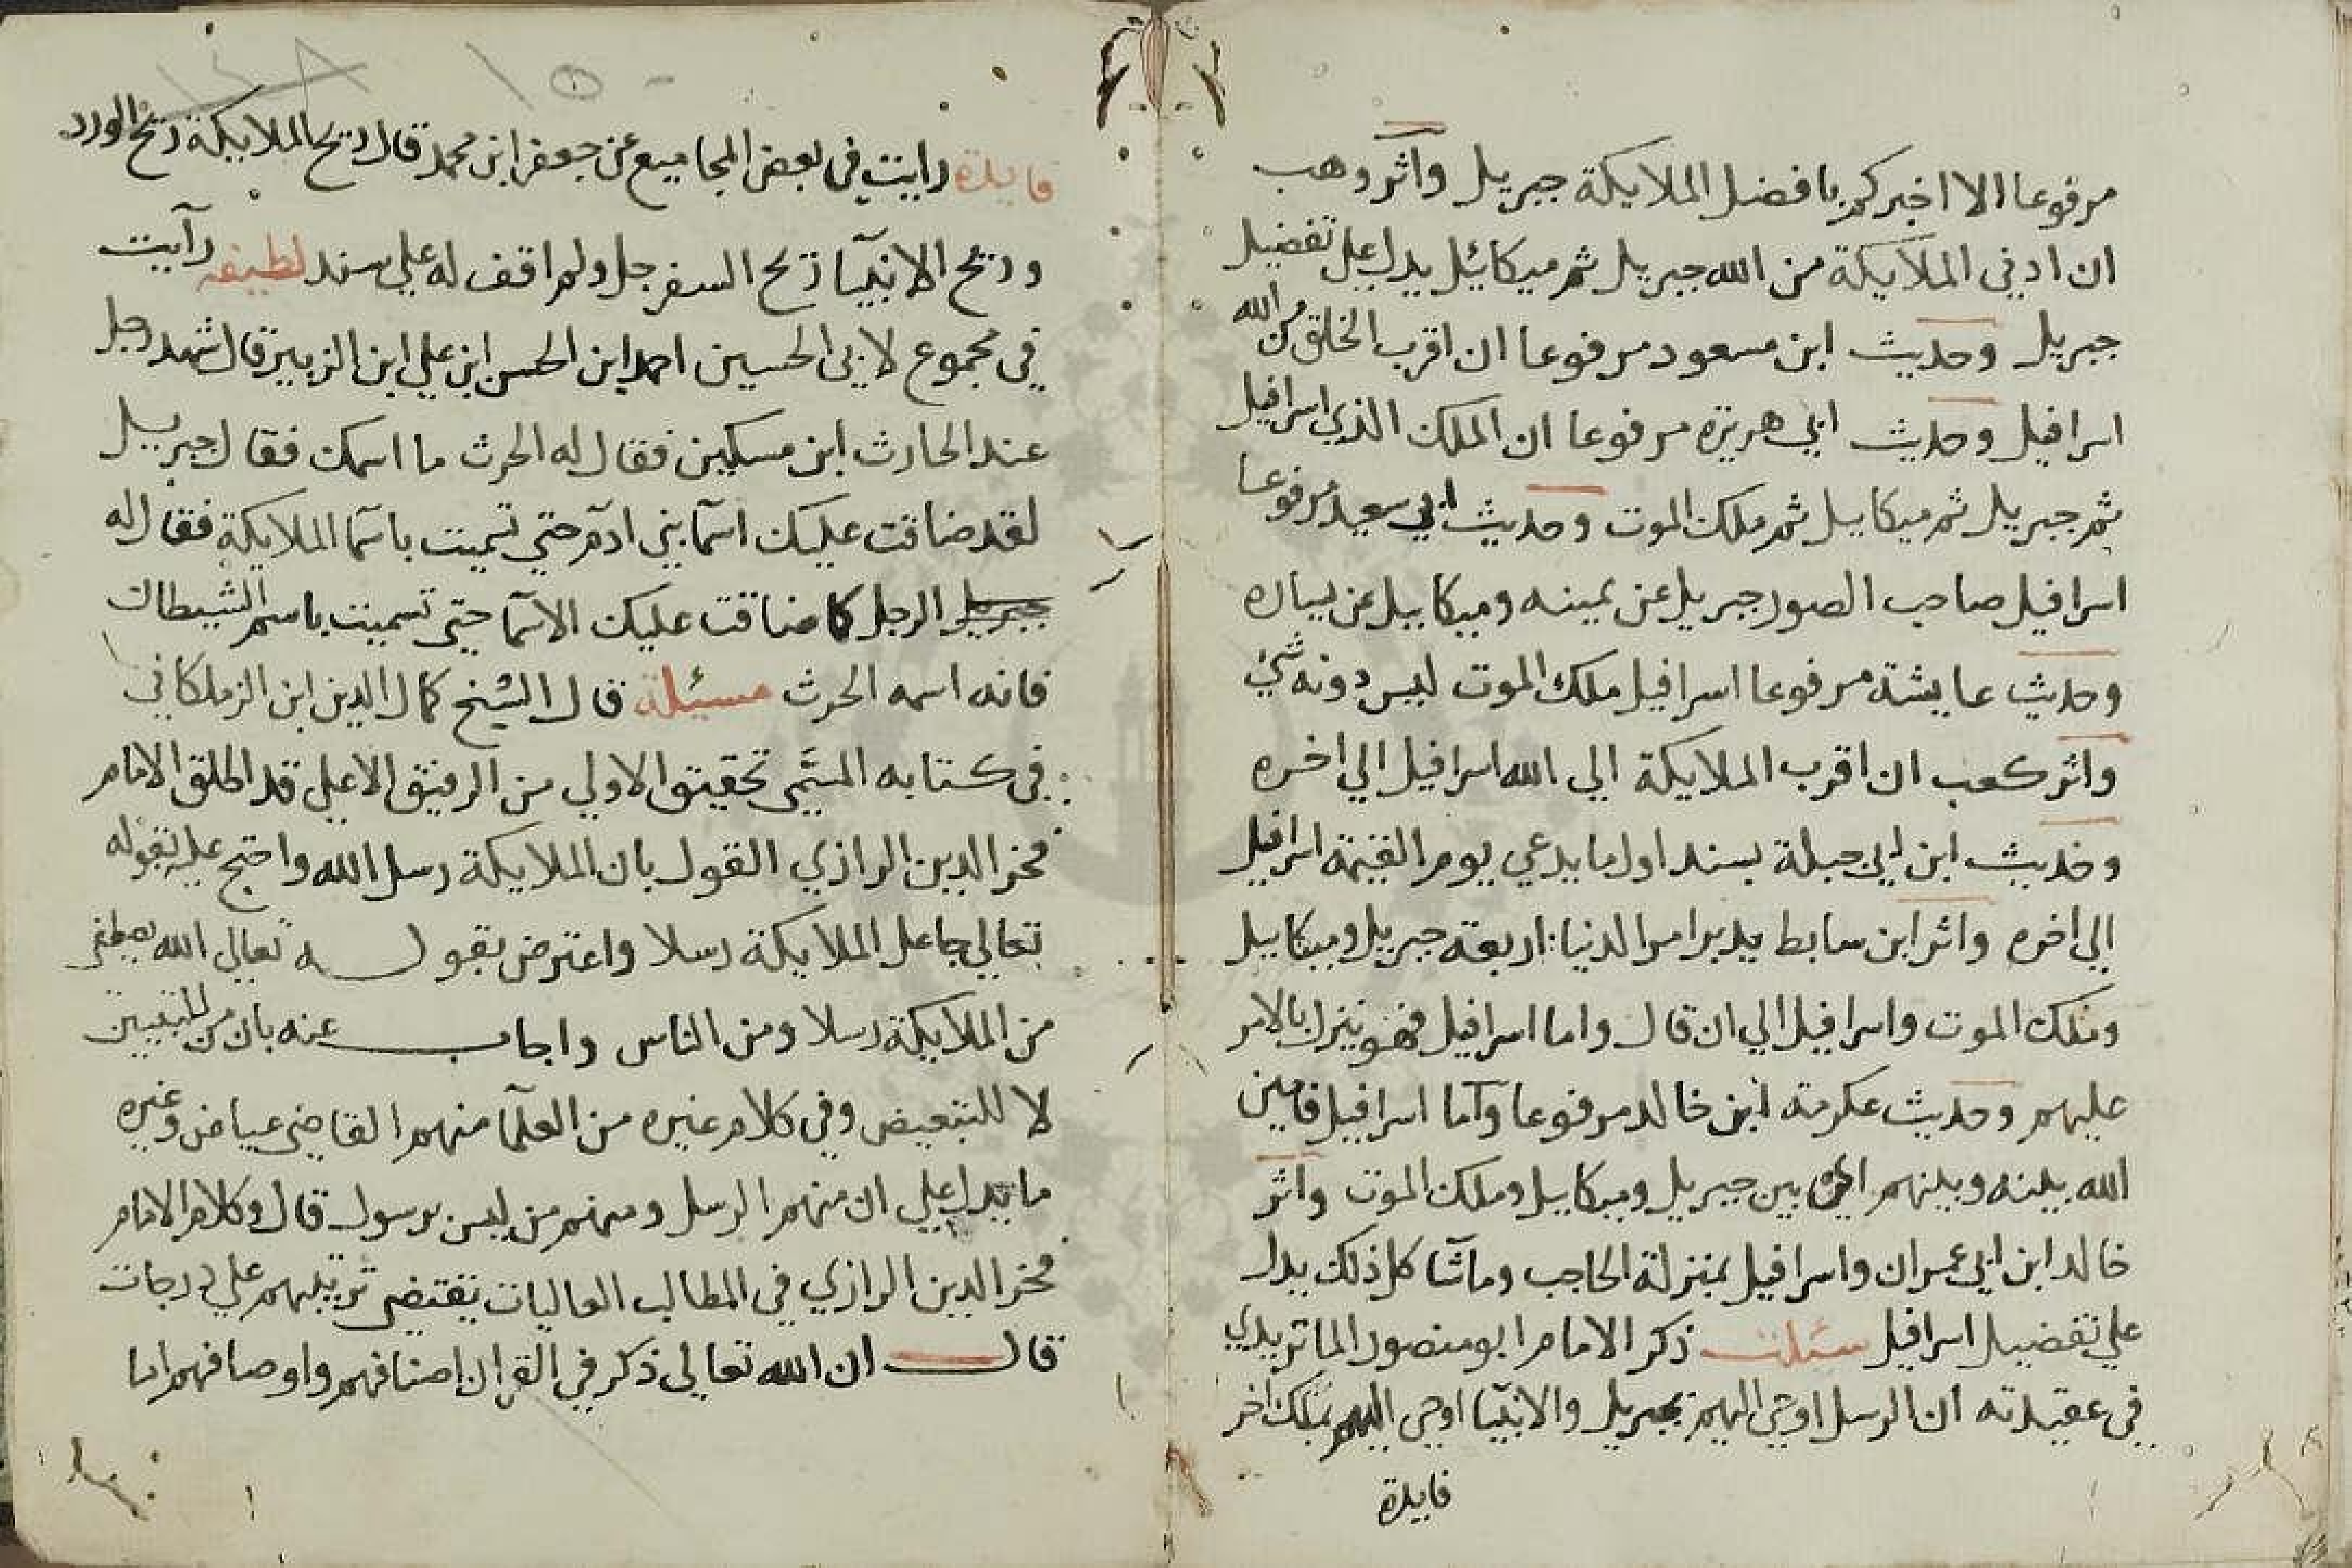 مرفوعا الا اخبركم بافضل الملايكة جبريل واثر وهب
ان ادني الملايكة من الله جبريل ثم ميكائيل يدل علي تفضيل
جبريل وحديث ابن مسعود مرفوعا ان اقرب الخلق من الله
اسرافيل وحديث ابي هريرة مرفوعا ان الملك الذي اسرافيل
ثم جبريل ثم ميكاييل ثم ملك الموت وحديث ابي سعيد مرفوعا
اسرافيل صاحب الصور جبريل عن يمينه وميكاييل عن يساره
وحديث عايشة مرفوعا اسرافيل ملك الموت ليس دونه شئ
واثر كعب ان اقرب الملايكة الي الله اسرافيل الي اخره
وحديث ابن ابي جبلة بسند اول ما يدعي يوم القيمة اسرافيل
الي اخره واثر ابن سابط يدبر امر الدنيا اربعة جبريل وميكاييل
وملك الموت واسرافيل الي ان قال واما اسرافيل فهو ينزل بالامر
عليهم وحديث عكرمة ابن خالد مرفوعا واما اسرافيل فامين
الله بينه وبينهم اي بين جبريل وميكاييل وملك الموت واثر
خالد ابن ابي عمران واسرافيل بمنزلة الحاجب وماشا كل ذلك يدل
علي تفضيل اسرافيل سئلة ذكر الامام ابو منصور الماتريدي
في عقيدته ان الرسل اوحي اليهم بجبريل والانبيا اوحي اليهم بملك اخر
فايدة
١٥٠
فايدة رايت في بعض المجاميع عن جعفر ابن محمد قال ريح الملايكة ريح الورد
وريح الانبيا ريح السفرجل ولم اقف له علي سند لطيفه رآيت
في مجموع لابي الحسين احمد ابن الحسن ابن علي ابن الزبير قال شهد رجل
عند الحارث ابن مسكين فقال له الحرث ما اسمك فقال جبريل
لقد ضاقت عليك اسما بني ادم حتي تسميت باسما الملايكة فقال له
جبريل الرجل كما ضاقت عليك الاسما حتي تسميت باسم الشيطان
فانه اسمه الحرث مسئلة قال الشيخ كمال الدين ابن الزملكاني
في كتابه المسمي تحقيق الاولي من الرفيق الاعلي قد اطلق الامام
فخر الدين الرازي القول بان الملايكة رسل الله واحتج عليه بقوله
تعالي جاعل الملايكة رسلا واعترض بقوله تعالي الله يصطفي
من الملايكة رسلا ومن الناس واجاب عنه بان من للتبيين
لا للتبعيض وفي كلام غيره من العلما منهم القاضي عياض وغيره
ما يدل علي ان منهم الرسل ومنهم من ليس برسول قال وكلام الامام
فخر الدين الرازي في المطالب العاليات يقتضي ترتيبهم علي درجات
قال ان الله تعالي ذكر في القران اصنافهم واوصافهم اما